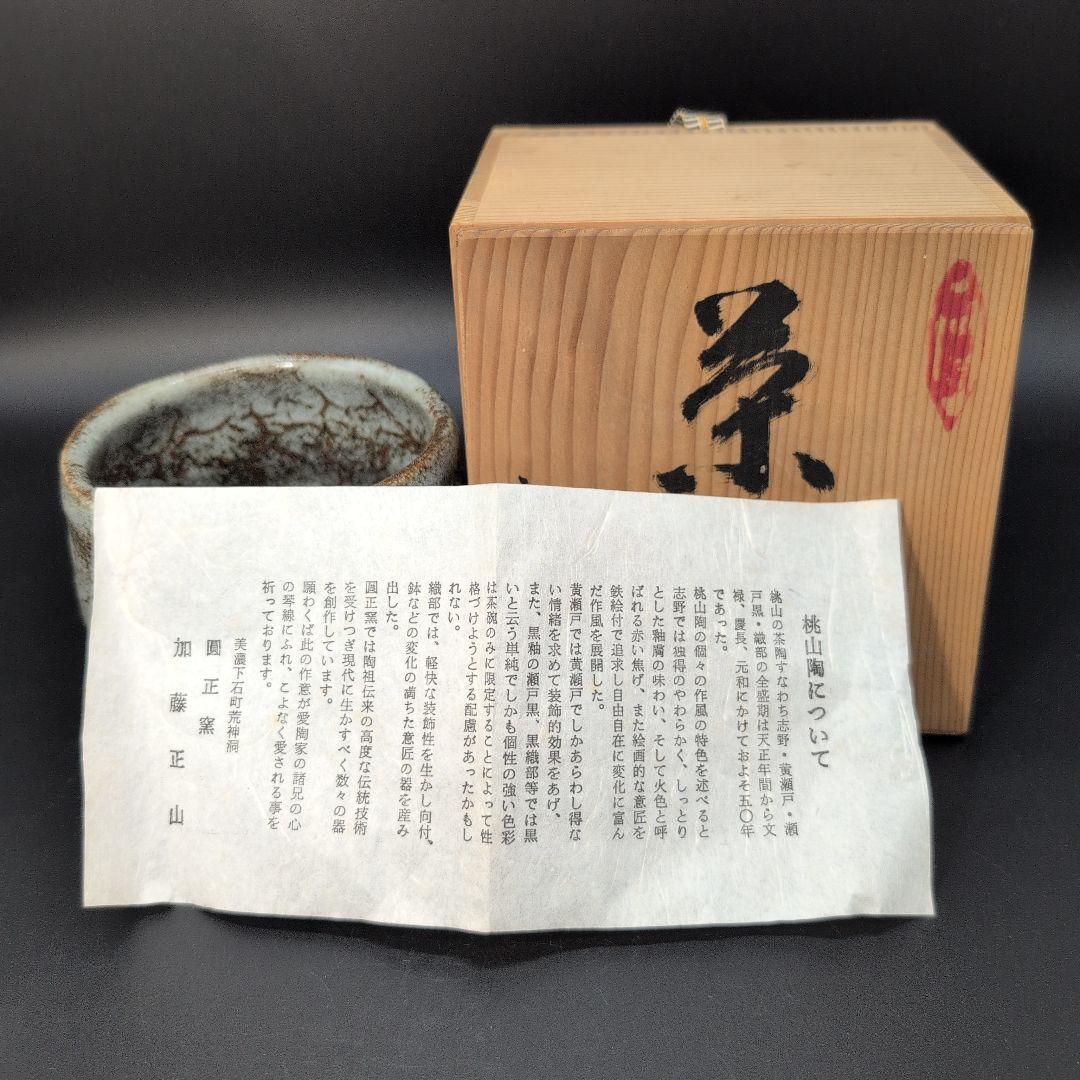 茶
桃山陶について
桃山の茶陶すなわち志野・黄瀬戸・瀬
戸黒・織部の全盛期は天正年間から文
禄、慶長、元和にかけておよそ五〇年
であった。
桃山陶の個々の作風の特色を述べると
志野では独得のやわらかく、しっとり
とした釉膚の味わい、そして火色と呼
ばれる赤い焦げ、また絵画的な意匠を
鉄絵付で追求し自由自在に変化に富ん
だ作風を展開した。
黄瀬戸では黄瀬戸でしかあらわし得な
い情緒を求めて装飾的効果をあげ、
また、黒釉の瀬戸黒、黒織部等では黒
いと云う単純でしかも個性の強い色彩
は茶碗のみに限定することによって性
格づけようとする配慮があったかもし
れない。
織部では、軽快な装飾性を生かし向付、
鉢などの変化の満ちた意匠の器を産み
出した。
圓正窯では陶祖伝来の高度な伝統技術
を受けつぎ現代に生かすべく数々の器
を創作しています。
願わくば此の作意が愛陶家の諸兄の心
の琴線にふれ、こよなく愛される事を
祈っております。
美濃下石町荒神洞
圓正窯
加藤正山